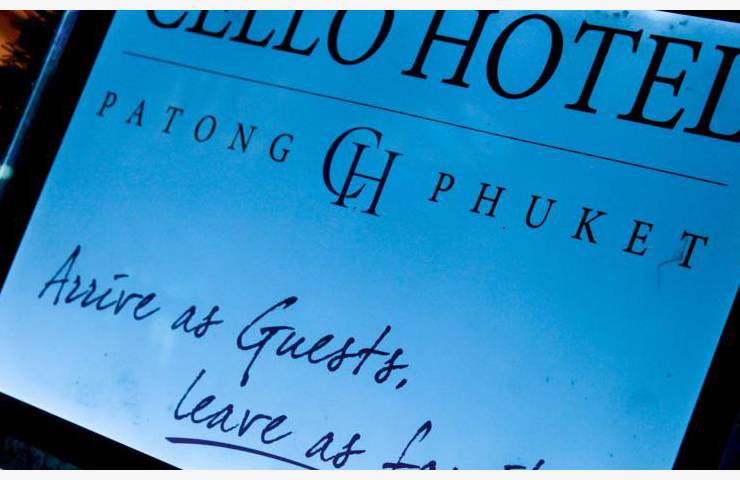 CELLO HOTEL
PATONG CH PHUKET
Arrive as Guests,
leave as